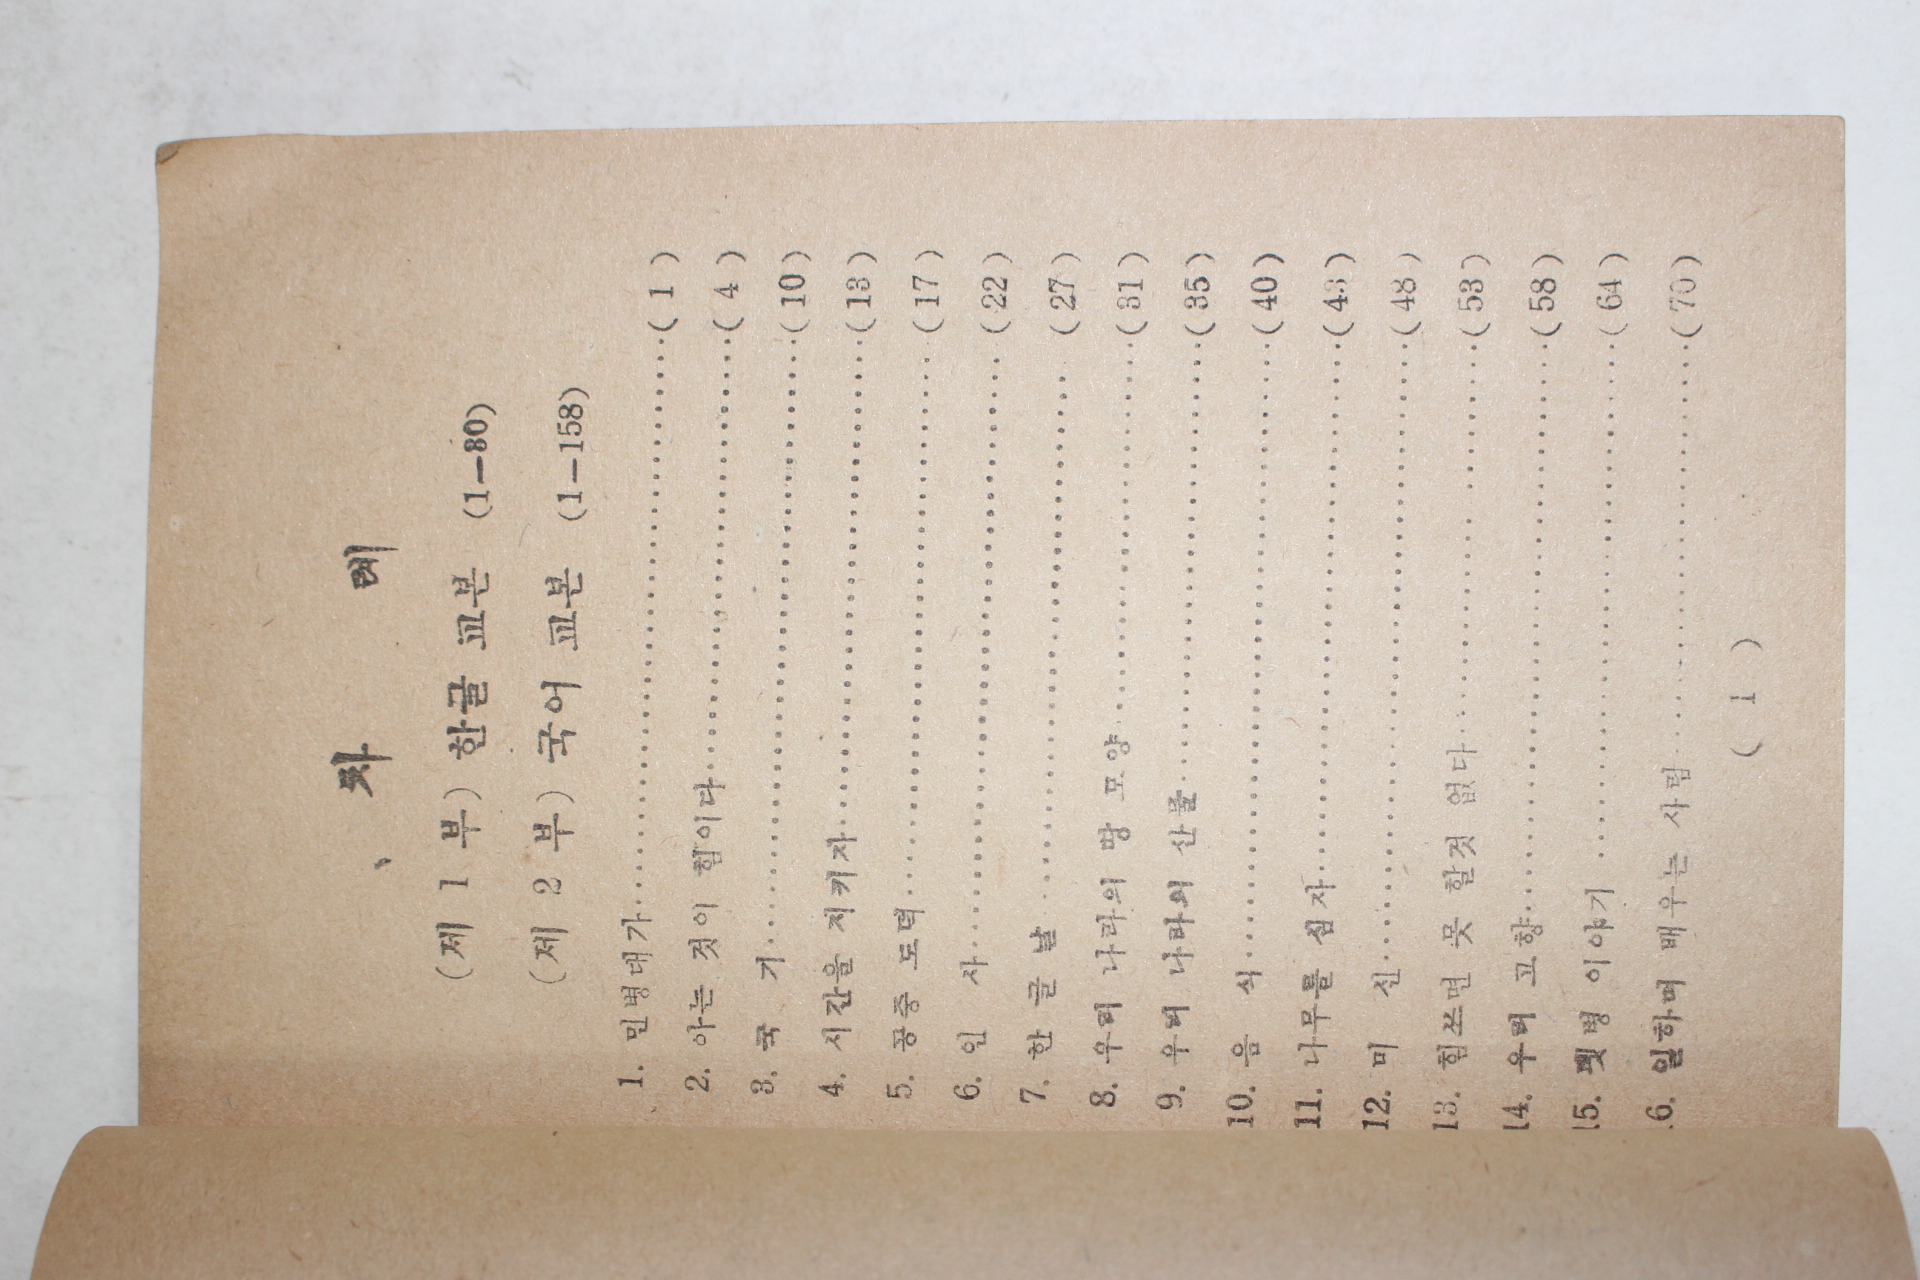 차 례
(제 1 부) 한글 교본 (1—80)
(제 2 부) 국어 교본 (1—158)
1. 민병대가……(1)
2. 아는 것이 힘이다……(4)
3. 국 기……(10)
4. 시간을 지키자……(13)
5. 공중 도덕……(17)
6. 인 사……(22)
7. 한 글 날……(27)
8. 우리 나라의 땅 모양……(31)
9. 우리 나라의 산물……(35)
10. 음 식……(40)
11. 나무를 심자……(43)
12. 미 신……(48)
13. 힘쓰면 못 할것 없다……(53)
14. 우리 고향……(58)
15. 이야기……(64)
16. 일하며 배우는 사람……(70)
( 1 )